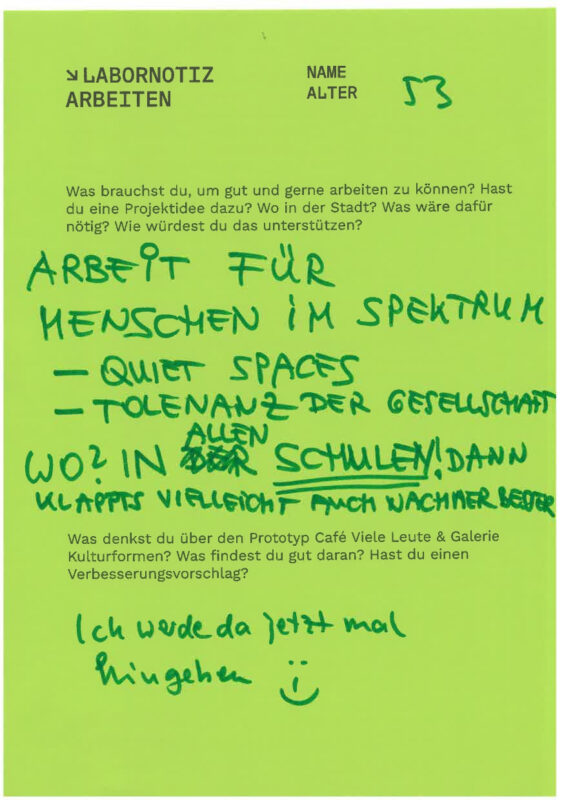 ↘ LABORNOTIZ
ARBEITEN
NAME
ALTER 53
Was brauchst du, um gut und gerne arbeiten zu können? Hast
du eine Projektidee dazu? Wo in der Stadt? Was wäre dafür
nötig? Wie würdest du das unterstützen?
ARBEIT FÜR
MENSCHEN IM SPEKTRUM
— QUIET SPACES
— TOLENANZ DER GESELLSCHAFT
WO? IN ALLEN SCHULEN! DANN
KLAPPTS VIELLEICHT AUCH NACHHER BESSER
Was denkst du über den Prototyp Café Viele Leute & Galerie
Kulturformen? Was findest du gut daran? Hast du einen
Verbesserungsvorschlag?
Ich werde da jetzt mal
hingehen